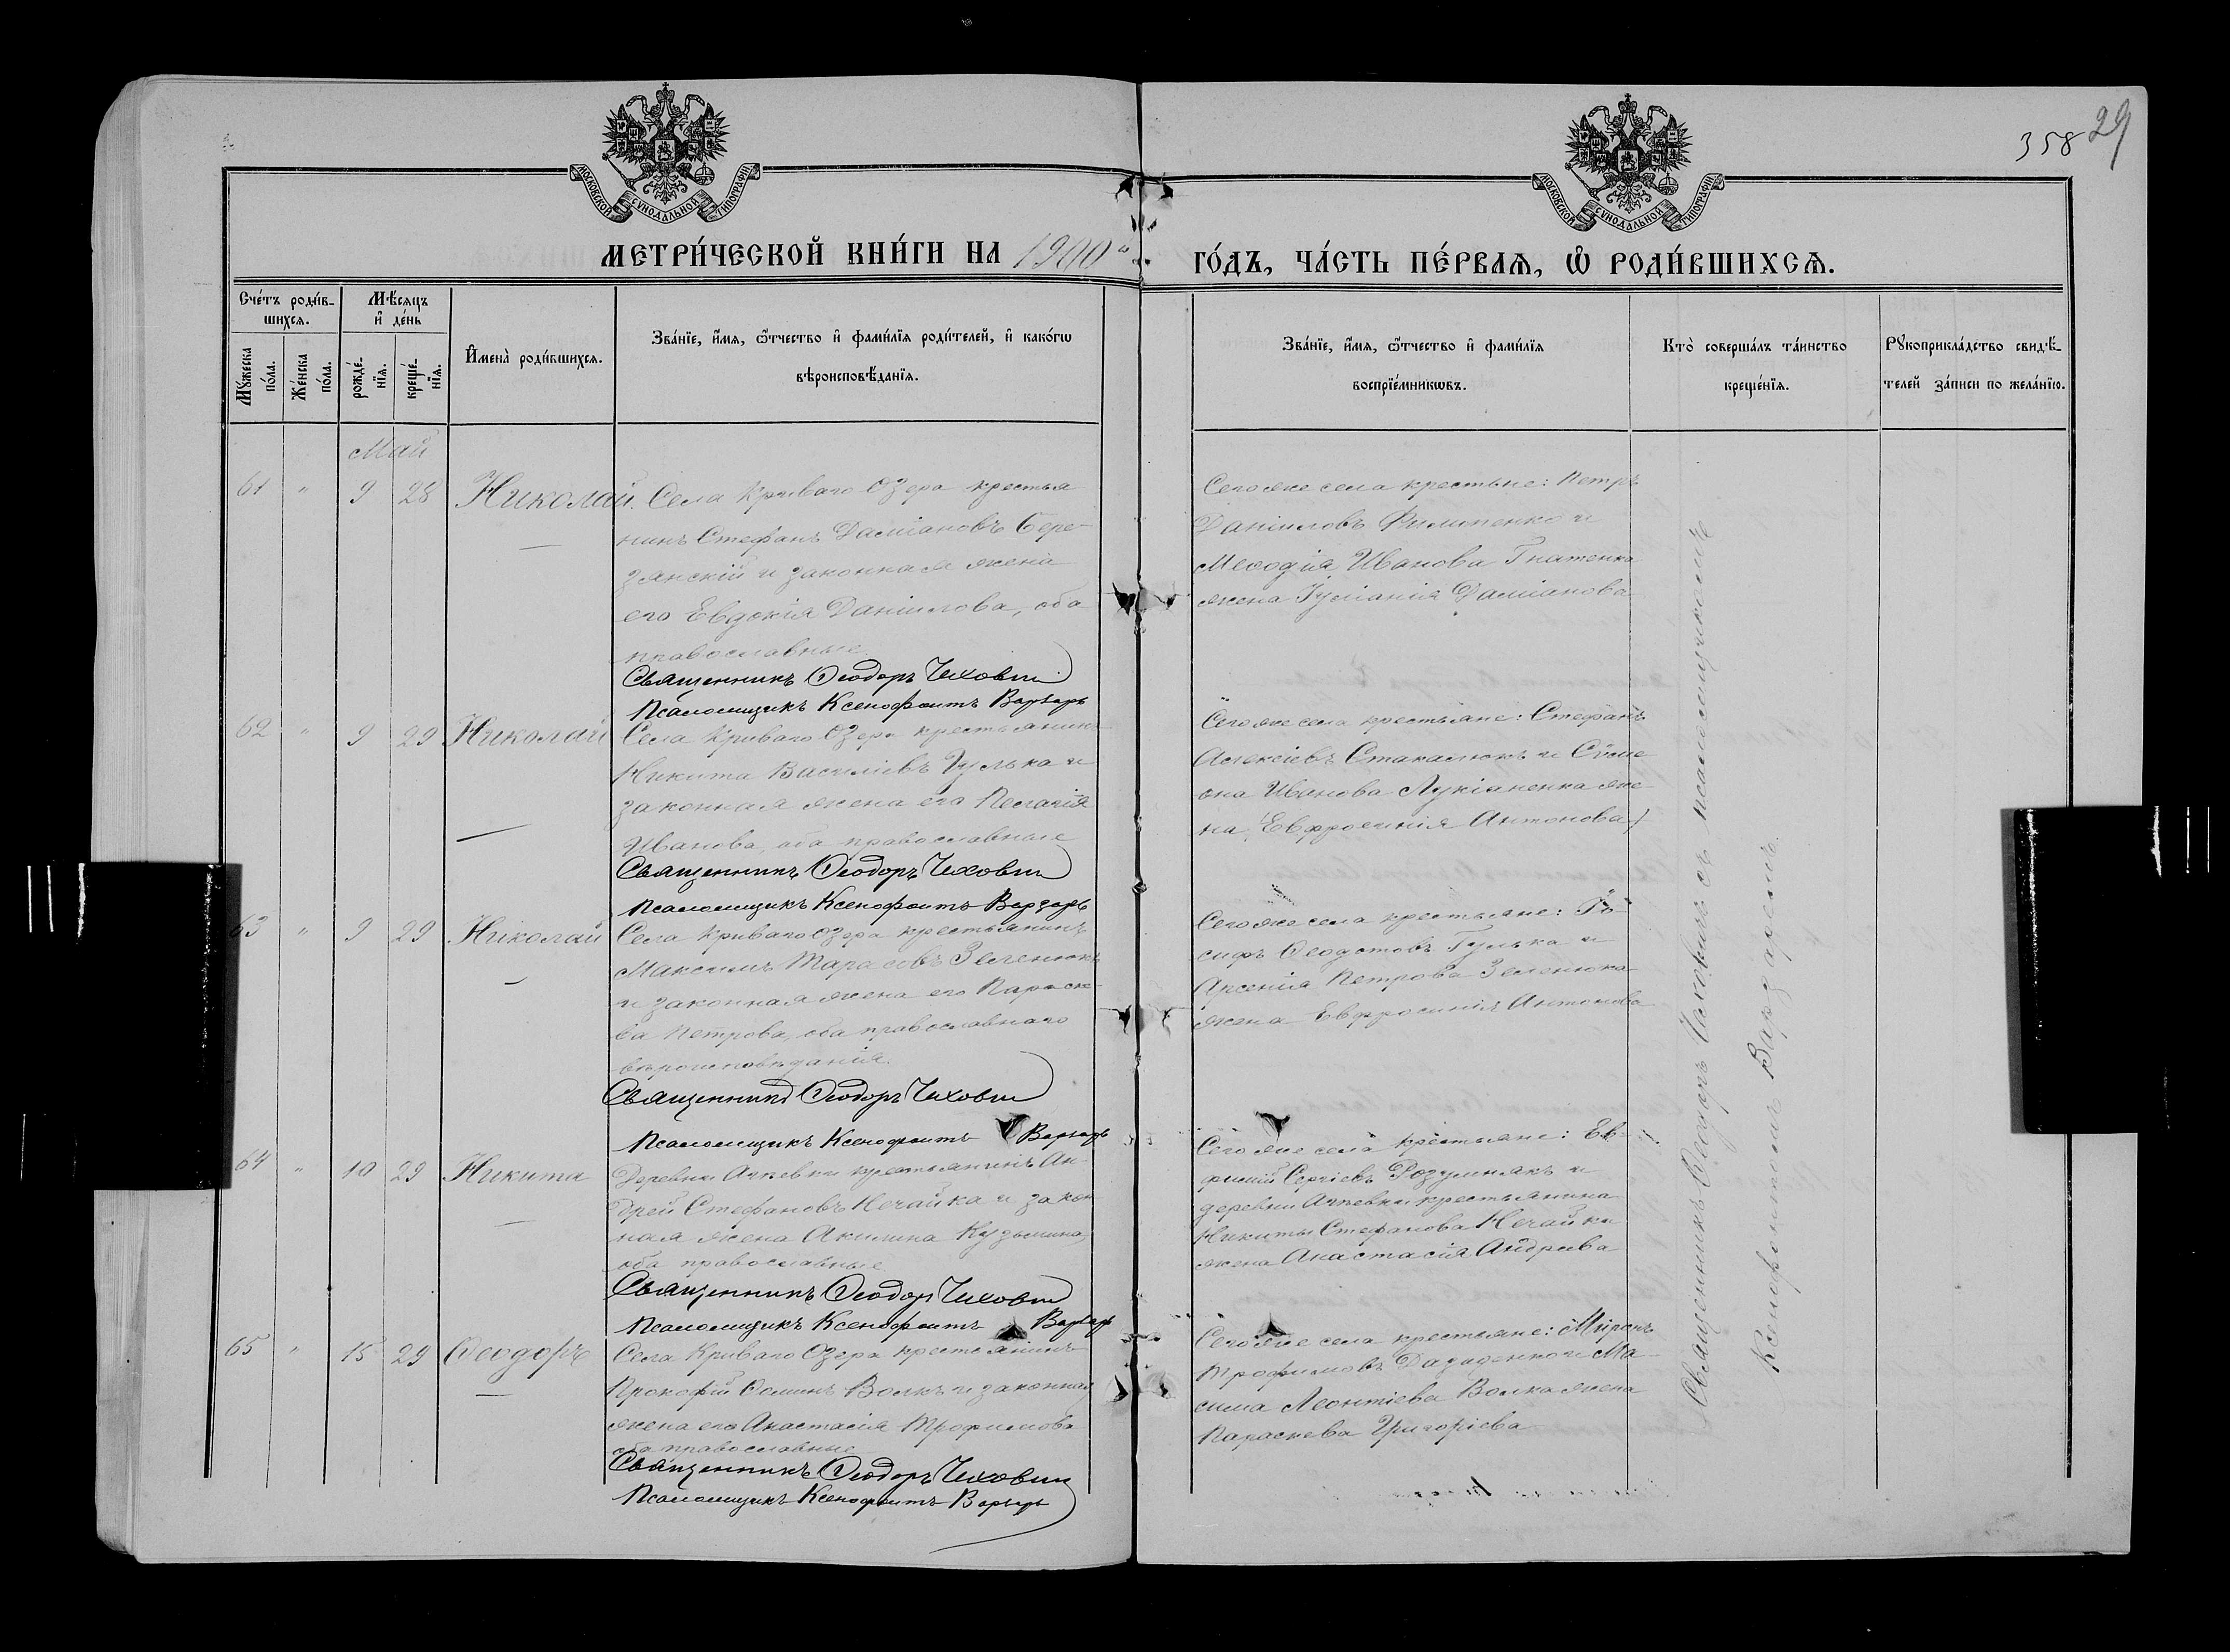 358 29
МОСКОВСКОЙ СѴНОДАЛЬНОЙ ТИПОГРАФІИ
МОСКОВСКОЙ СѴНОДАЛЬНОЙ ТИПОГРАФІИ
МЕТРИ́ЧЕСКОЙ КНИ́ГИ НА 1900 й
ГО́ДЪ, ЧА́СТЬ ПЕ́РВАѦ, Ѡ҆ РОДИ́ВШИХСѦ.
Сче́тъ роди́в-
шихсѧ.
Мѣ́сѧцъ
и҆ де́нь
Мꙋ́жеска
по́ла.
Же́нска
по́ла.
рожде́-
нїѧ.
креще́-
нїѧ.
И҆мена̀ роди́вшихсѧ.
Зва́нїе, и҆́мѧ, ѻ҆́тчество и҆ фами́лїѧ роди́телей, и҆ како́гѡ
вѣроисповѣ́данїѧ.
Зва́нїе, и҆́мѧ, ѻ҆́тчество и҆ фами́лїѧ
воспрїе́мникѡвъ.
Кто̀ соверша́лъ та́инство
креще́нїѧ.
Рꙋкоприкла́дство свидѣ́-
телей за́писи по жела́нїю.
Май
61 " 9 28 Николай. Села Криваго Озера крестья
нинъ Стефанъ Даміановъ Бере-
занскій и законная жена
его Евдокія Даніилова, оба
православные.
Священникъ Ѳеодоръ Чеховичъ
Псаломщикъ Ксенофонтъ Варзарь
Сего же села крестьяне: Петръ
Даніиловъ Пилипенко и
Меѳодія Иванова Гнатенка
жена Іуліанія Даміанова
62 " 9 29 Николай Села Криваго Озера крестьянинъ
Никита Василіевъ Гулька и
законная жена его Пелагія
Иванова, оба православные
Священникъ Ѳеодоръ Чеховичъ
Псаломщикъ Ксенофонтъ Варзарь
Сего же села крестьяне: Стефанъ
Алексіевъ и Сѵме
она Иванова Лукіаненка же-
на Евфросинія Антонова
63 " 9 29 Николай Села Криваго Озера крестьянинъ
Максимъ Тарасовъ Зеленюкъ
и законная жена его Параске-
ва Петрова, оба православнаго
вѣроисповѣданія.
Священникъ Ѳеодоръ Чеховичъ
Псаломщикъ Ксенофонтъ Варзарь
Сего же села крестьяне: Іо-
сифъ Ѳеодотовъ Гулька и
Арсенія Петрова Зеленюка
жена Евфросинія Антонова
64 " 10 29 Никита Деревни крестьянинъ Ан-
дрей Стефановъ Нечайка и закон
ная жена Акилина Кузьмина,
оба православные
Священникъ Ѳеодоръ Чеховичъ
Псаломщикъ Ксенофонтъ Варзарь
Сего же села крестьяне: Ев-
фимій Сергіевъ Розумнякъ и
деревни крестьянина
Никиты Стефанова Нечайки
жена Анастасія Андреева
65 " 15 29 Ѳеодоръ Села Криваго Озера крестьянинъ
Прокофій Ѳоминъ Волкъ и законная
жена его Анастасія Трофимова
оба православные
Священникъ Ѳеодоръ Чеховичъ
Псаломщикъ Ксенофонтъ Варзарь
Сего же села крестьяне: Миронъ
Трофимовъ и Ма-
сима Леонтіева Волка жена
Параскева Григоріева
Священникъ Ѳеодоръ Чеховичъ съ псаломщикомъ
Ксенофонтомъ Варзаремъ.